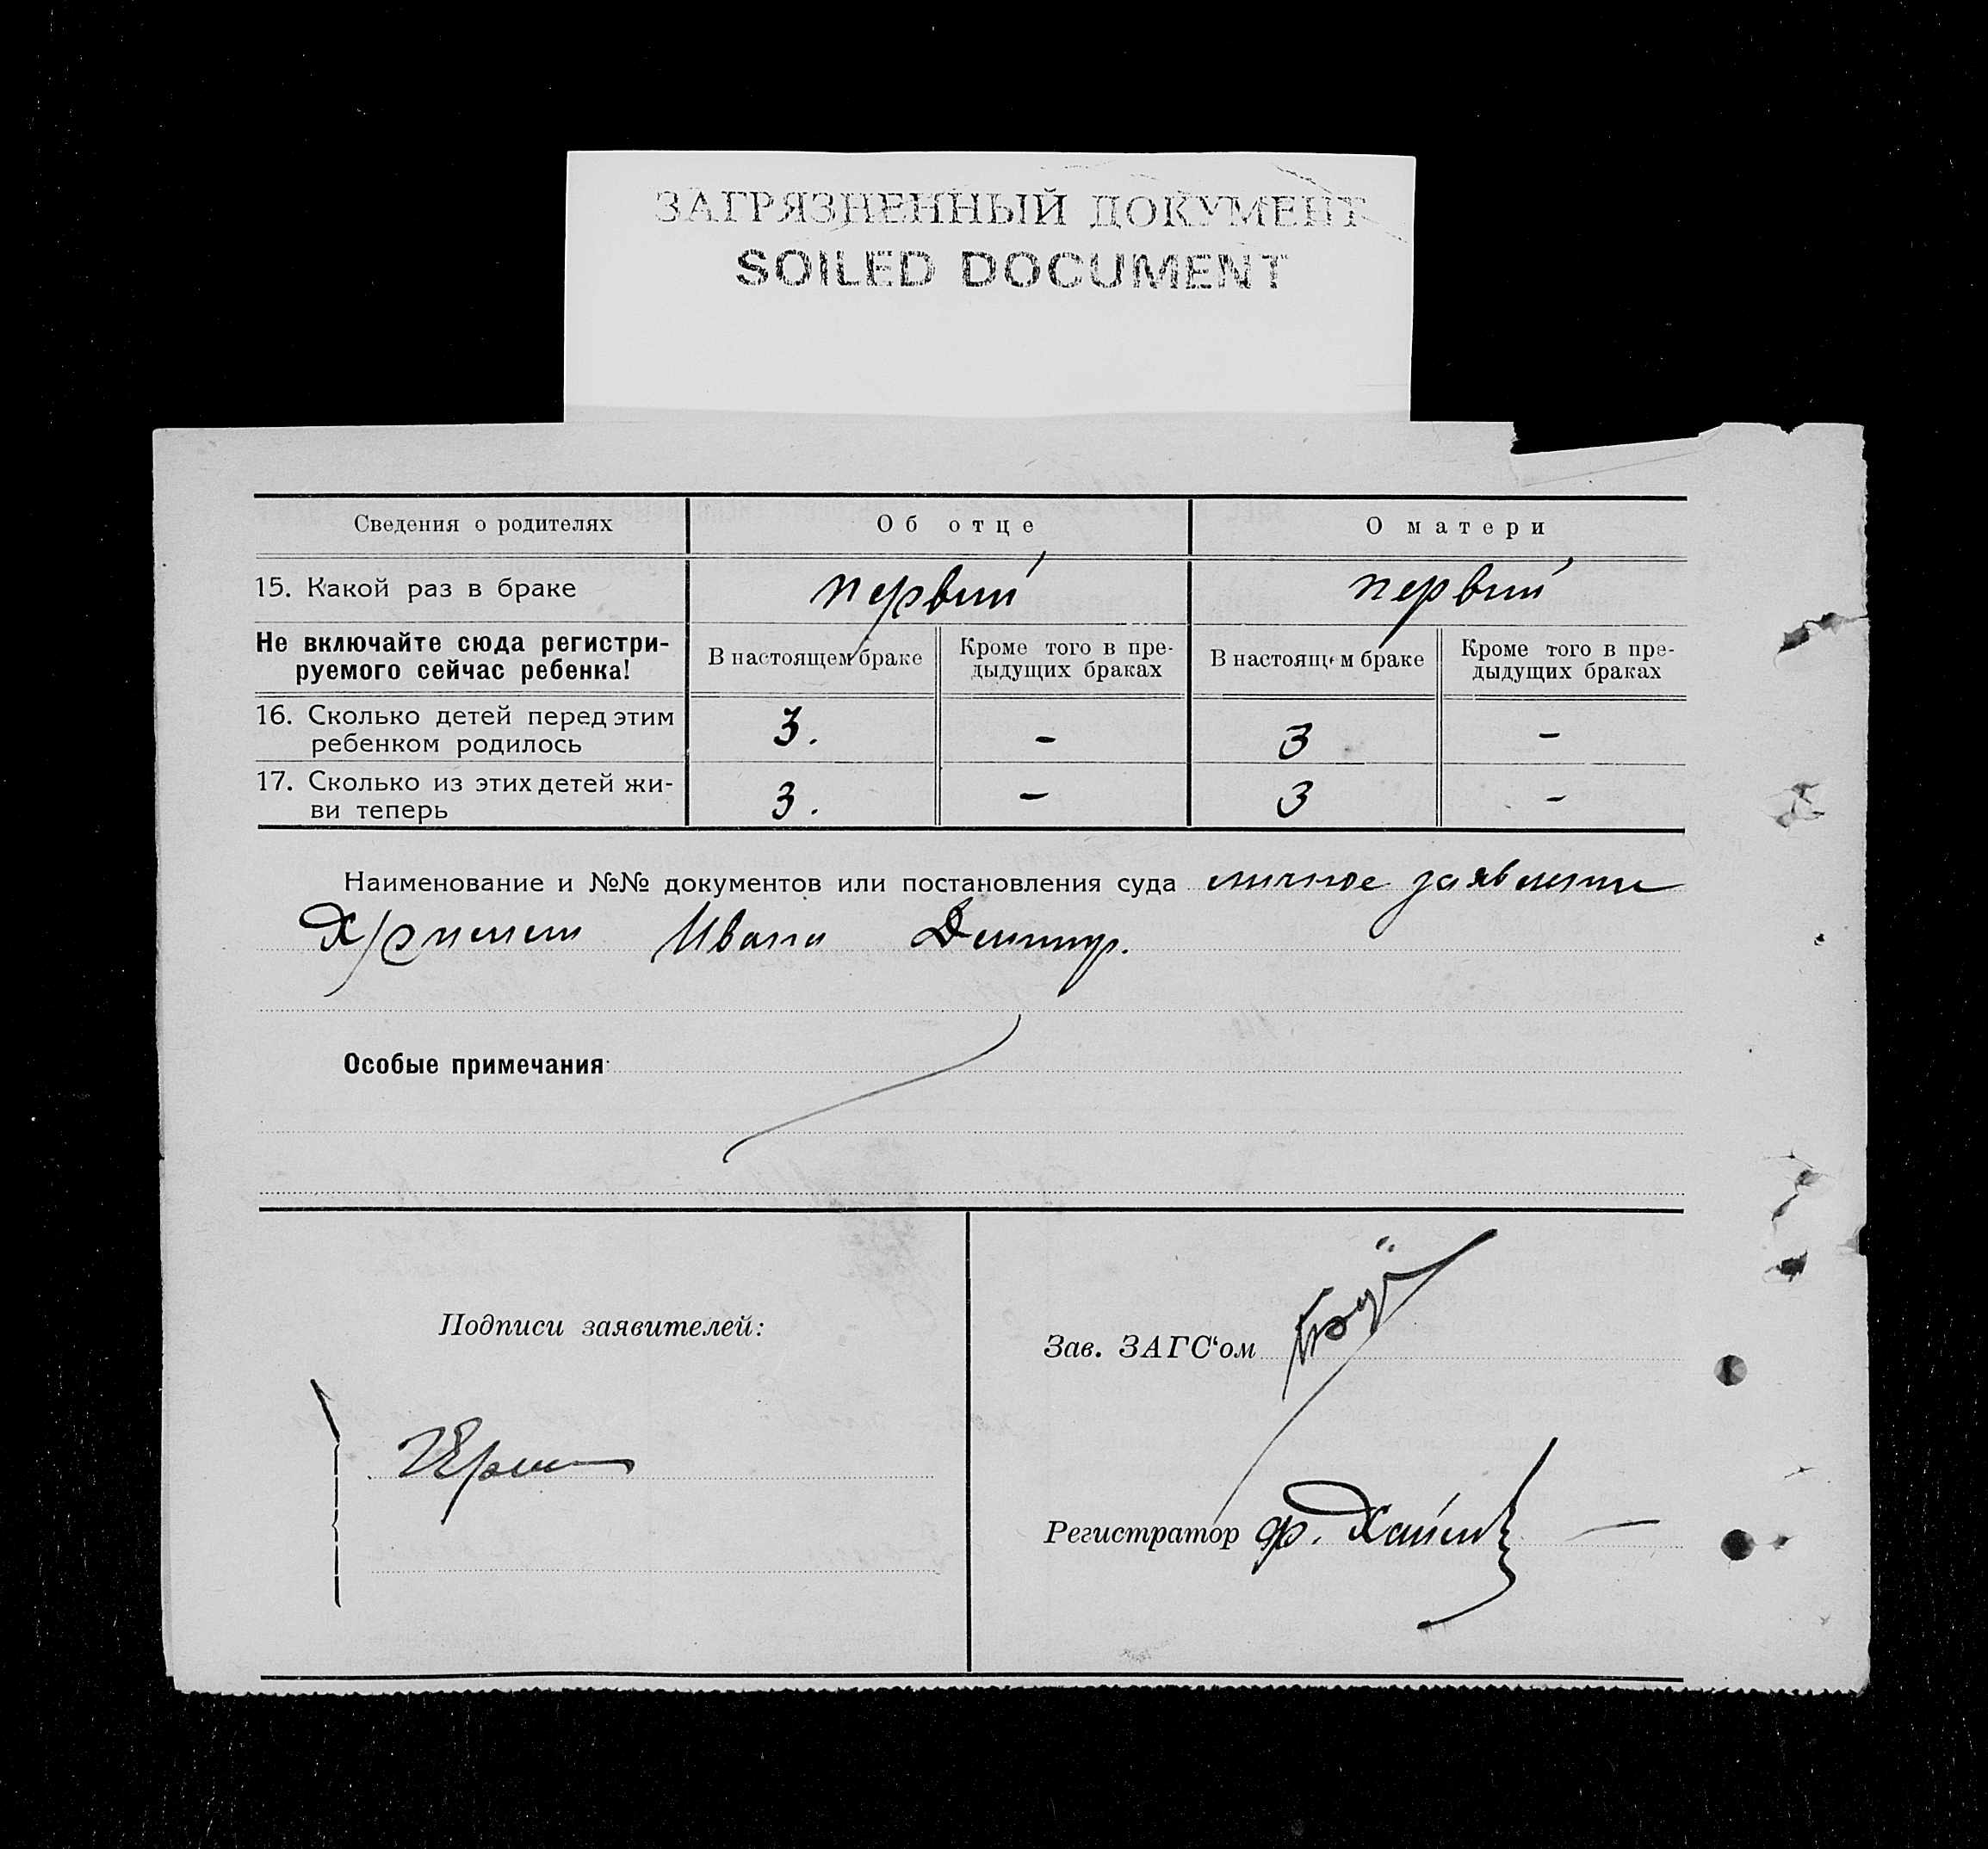 ЗАГРЯЗНЕННЫЙ ДОКУМЕНТ
SOILED DOCUMENT
Сведения о родителях Об отце О матери
15. Какой раз в браке первый первый
Не включайте сюда регистри-
руемого сейчас ребенка!
В настоящем браке
Кроме того в пре-
дыдущих браках
В настоящем браке
Кроме того в пре-
дыдущих браках
16. Сколько детей перед этим
ребенком родилось
3. - 3 -
17. Сколько из этих детей жи-
ви теперь
3. - 3 -
Наименование и №№ документов или постановления суда личное заявление
Ивана Димитр.
Особые примечания
Подписи заявителей:
Зав. ЗАГС‘ом
Регистратор ф.